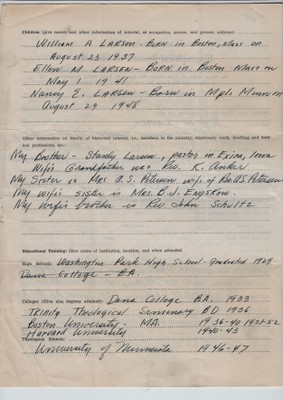 Children (give name(s) and other information of interest, as occupation, spouse, and present address):
William A LARSEN - BORN in Boston, Mass on
August 23 1937
Ellen M. LARSEN - BORN in Boston Mass on
May 1 1941
Nancy E. LARSEN - Born in Mpls Minn on
August 29 1948
Other information on family of historical interest, i.e., members in the ministry, missionary work,
My Brother - Stanley Larsen, pastor in Exira, Iowa
Wife's Grandfather was Rev. K. Anker
My Sister is Mrs. A. S. Petersen wife of Rev A S. Petersen
My wife's sister is Mrs. B. J.
My wife's brother is Rev John Schultz
Educational Training: Give name of institution, location, and when attended.
High School: Washington Park High School - graduated 1929
Dana College - B.A.
Colleges (Give also degrees received): Dana College B.A. 1933
Trinity Theological Seminary B.D 1936
Boston University - M.A. 1936-40 1951-52
Harvard University 1940-43
Theological Schools:
University of Minnesota 1946-47